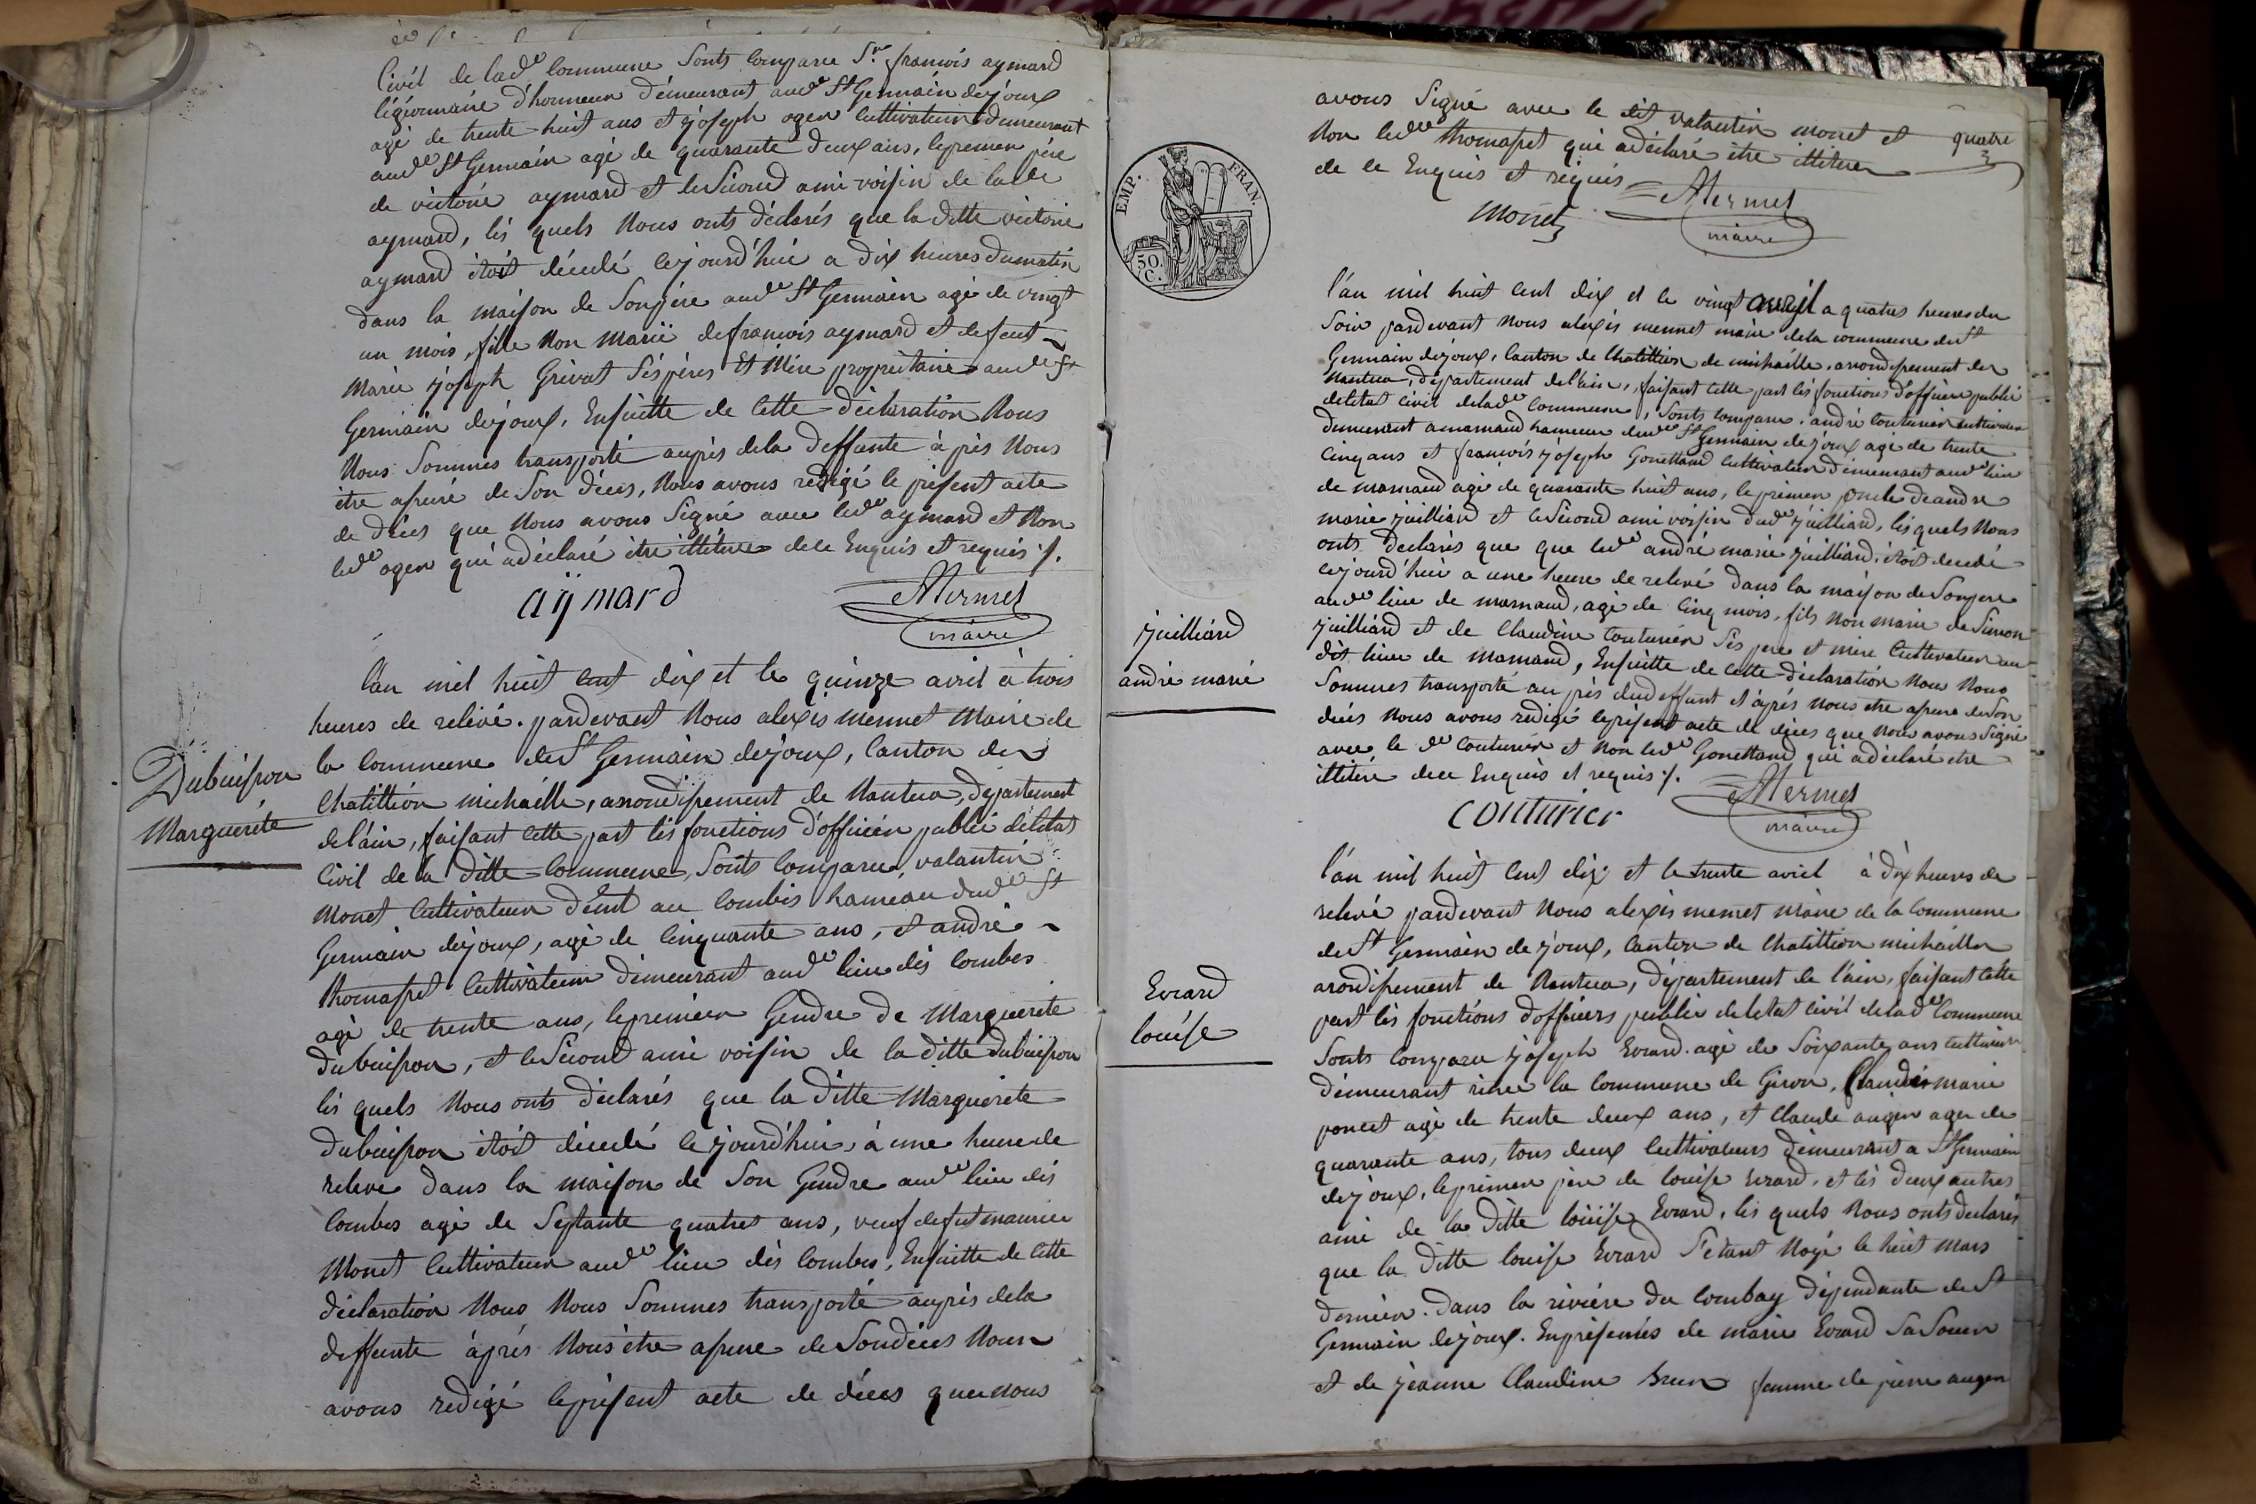 Civil de lade commune Sonts comparu Sr. francois aymard
légionnaire d'honneur démeurant aude St Germain dejoux
agé de trente huit ans et joseph oger Cultivateur demeurant
aude St Germain agé de quarante deux ans, le premier père
de victoire aymard et le Second ami voisin de lade
aymard, lés quels Nous onts déclarés que la ditte victoire
aymard étoit décédé cejourd'hui a dix heures dumatin
dans la maison de Sonpére aude St Germain agé de vingt
un mois, fille Non Marié defrancois aymard et defeut
Marie joseph Grivat Sés péres Et Mére propriétaire aude St
Germain dejoux, Ensuitte de Cette déclaration Nous
Nous Sommes transporté auprès dela deffunte à près Nous
étre assuré de Son décés, Nous avons rédigé le présent acte
de Décés que Nous avons Signé avec lede aymard et Non
lede oger qui adéclaré étre illétéré dece Enquis et requis ·/.
aÿmard
AMermet
maire
Dubuisson
Marguerite
l'an mil huit cent dix et le quinze avril à trois
heures de relivé. pardevant Nous alexis mermet Maire de
la Commune de St Germain dejoux, Canton de
Chatillion michaille, arrondissement de Nantua, département
de l'ain, faisant cette part lés fonctions d'officier public délétat
Civil de la ditte Commune, Sonts Comparu, valantin
Monet Cultivateur démt au Combés hameau dude St
Germain dejoux, agé de Cinquante ans, et andré
thomasset Cultivateur démeurant aude lieu dés Combes
agé de trente ans, lepremier Gendre de Marguerite
Dubuisson, et leSecond ami voisin de la ditte Dubuisson
lés quels Nous onts déclarés que la ditte Marguerite
Dubuisson étoit décédé cejourd'hui, à une heure de
releve dans la maison de Son Gendre aude lieu dés
Combes agé de Septante quatres ans, veuf defut maurice
Monet Cultivateur aude lieu dés Combes, Ensuitte de Cette
déclaration Nous Nous Sommes transporté auprés dela
deffunte àprés Nous étre assure de Sondécés Nous
avons redigé leprésent acte de décés que nous
EMP. FRAN.
50.
C.
avons Signé avec le dit valantin monet et
Non lede thomasset qui adéclaré étre illitéré
de ce Enquis et requis
quatre
Monet
AMermet
maire
juilliard
andré marie
l'an mil huit cent dix et le vingt avril a quatres heures du
Soir pardevant Nous alexis mermet maire dela commune de St
Germain dejoux, Canton de Chatillion de michaille, arrondissement de
Nantua, département del'ain, faisant cette part lés fonctions d'officier public
deletat civil delade Commune, Sonts comparu. andré Couturier cultivateur
demeurant amarnaud hameau dude St Germain dejoux agé de trente
Cinq ans et francois joseph Gonettand Cultivateur démeurant aude lieu
de marnaud agé de quarante huit ans, le premier oncle deandré
marie juilliard et leSecond ami voisin dude juilliard, lés quels Nous
onts declarés que que lede andré marie juilliard, étoit decedé
cejourd'hui a une heure de relevé dans la maison de Sonpere
aude lieu de marnaud, agé de Cinq mois, fils Non marie de Simon
juilliard et de Claudine Couturier Sés pere et mère Cultivateur au
dit lieu de Marnaud, Ensuitte de cette déclaration Nous Nous
Sommes transporté au près dudeffunt et àprés Nous etre assure deSon
décés Nous avons rédigé leprésent acte de décés que Nous avons Signé
avec le de Couturier et Non lede Gonettand qui adéclaré etre
illitéré dece Enquis et requis ·/.
couturier
AMermet
maire
Evrard
louise
l'an mil huit cent dix et le trente avril à dix heures de
relevé pardevant Nous alexis mermet maire de la Commune
de St Germain de joux, Canton de Chatillion michaille
arondissement de Nantua, département de l'ain, faisant Cette
part lés fonctions d'officiers public deletat civil delade Commune
Sonts comparu joseph Evrard. agé de Soixante ans cultivateur
démeurant riére la commune de Giron, Claude marie
poncet agé de trente deux ans, et Claude augen agee de
quarante ans, tous deux Cultivateurs démeurant a St Germain
dejoux, le premier père de louise Evrard, et lés deux autres
ami de la ditte loüise Evrard, lés quels Nous onts declarés
que la ditte louise Evrard S'etant Noyé le huit mars
dernier. Dans la riviére du Combay dépendante de St
Germain dejoux. Enprésentés de marie Evrard Sa Soeur
et de jeanne Claudine Brun femme de pierre augen